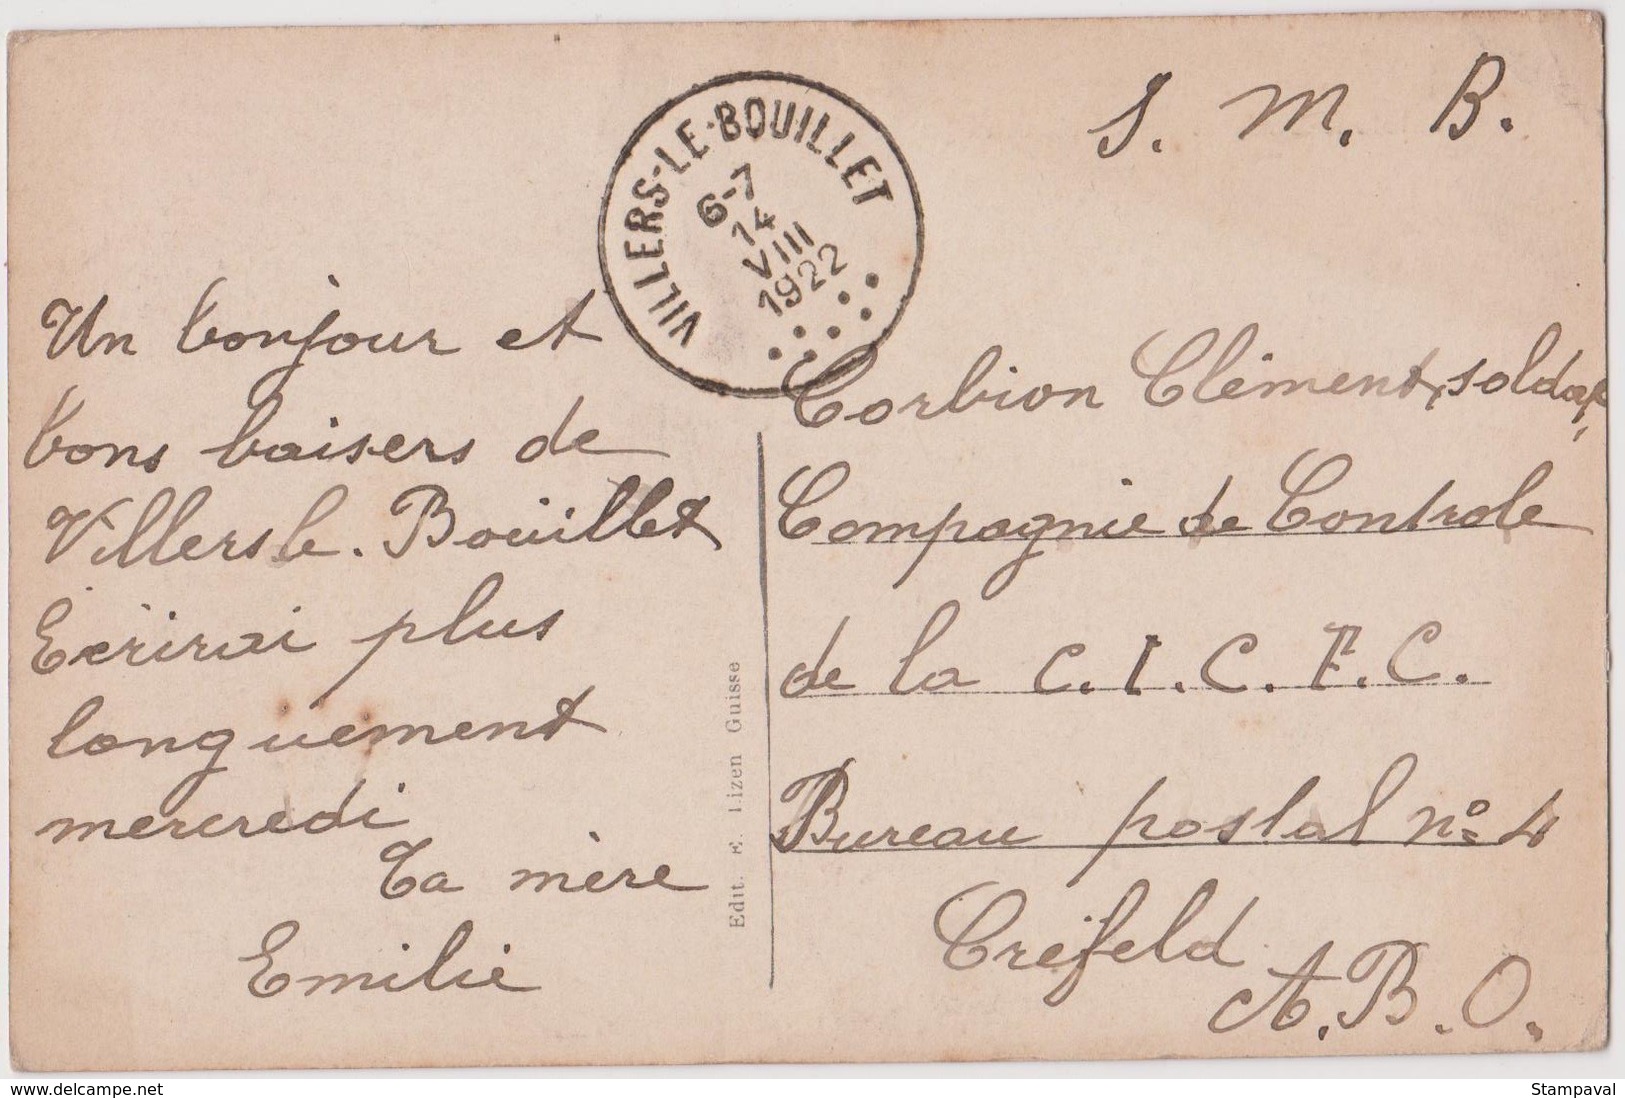 S. M. B.
VILLERS-LE-BOUILLET
6-7
14
VIII
1922
Un bonjour et
bons baisers de
Villers le. Bouillet
Ecrirai plus
longuement
mercredi
Ta mère
Emilie
Edit. E. Lizen Guisse
Corbion Clément, soldat,
Compagnie de Controle
de la C. I. C. F. C.
Bureau postal no 4
Créfeld
A. B. O.
www.delcampe.net
Stampaval